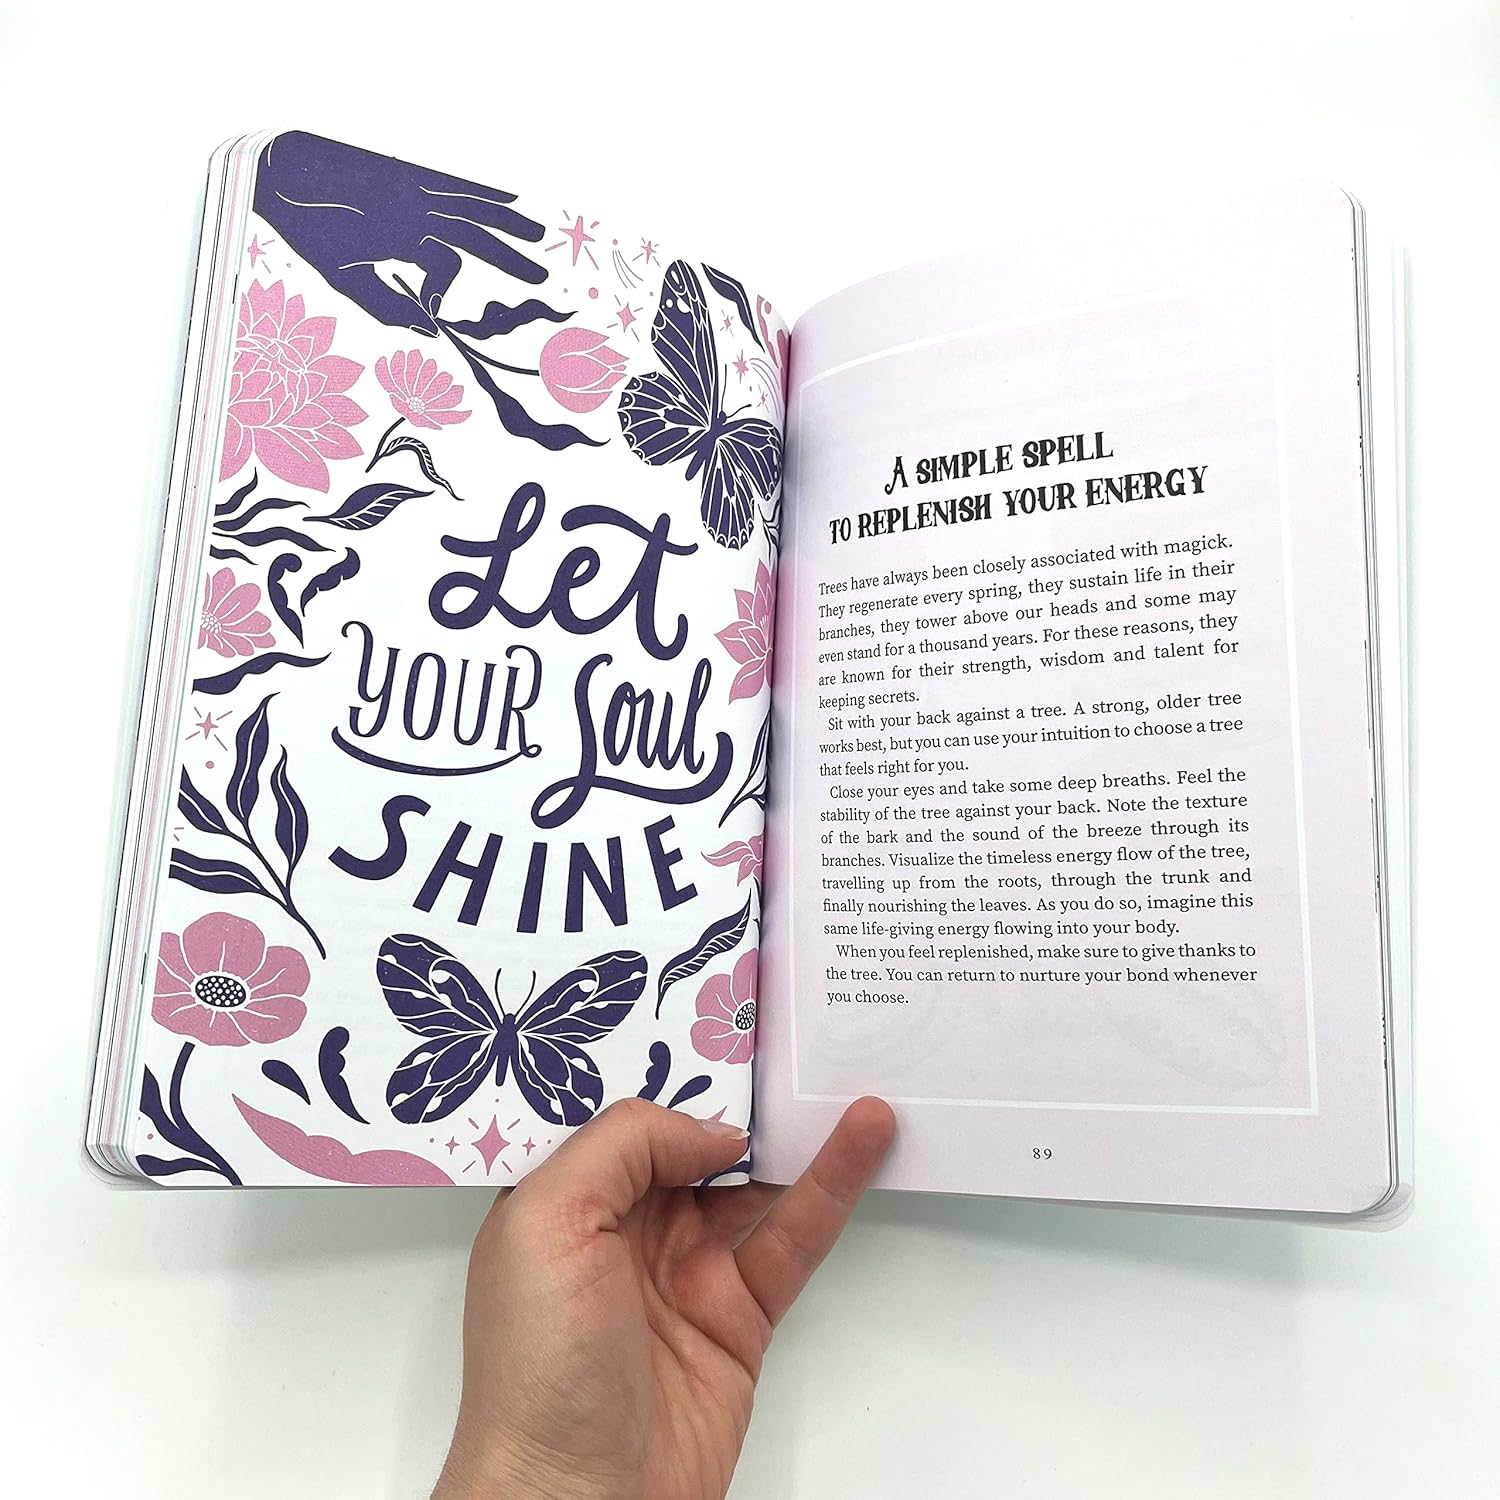 Let
YOUR Soul
SHINE
A SIMPLE SPELL
TO REPLENISH YOUR ENERGY
Trees have always been closely associated with magick.
They regenerate every spring, they sustain life in their
branches, they tower above our heads and some may
even stand for a thousand years. For these reasons, they
are known for their strength, wisdom and talent for
keeping secrets.
Sit with your back against a tree. A strong, older tree
works best, but you can use your intuition to choose a tree
that feels right for you.
Close your eyes and take some deep breaths. Feel the
stability of the tree against your back. Note the texture
of the bark and the sound of the breeze through its
branches. Visualize the timeless energy flow of the tree,
travelling up from the roots, through the trunk and
finally nourishing the leaves. As you do so, imagine this
same life-giving energy flowing into your body.
When you feel replenished, make sure to give thanks to
the tree. You can return to nurture your bond whenever
you choose.
89